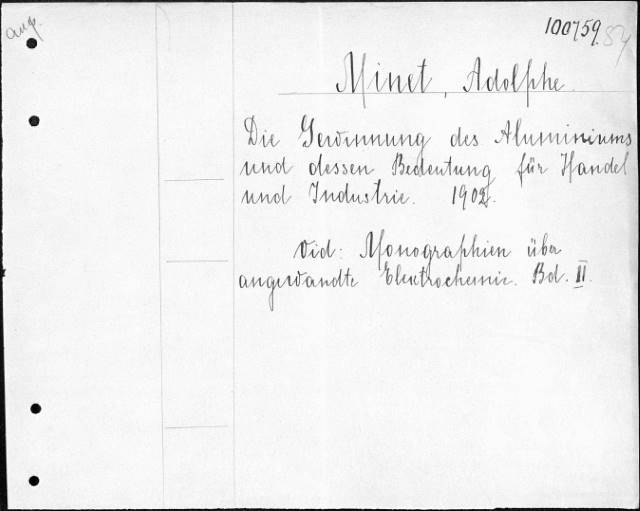 ang.
100759.
Minet, Adolphe.
Die Gewinnung des Aluminiums
und dessen Bedeutung für Handel
und Industrie. 1902.
Vid: Monographien über
angewandte Elektrochemie. Bd. II.